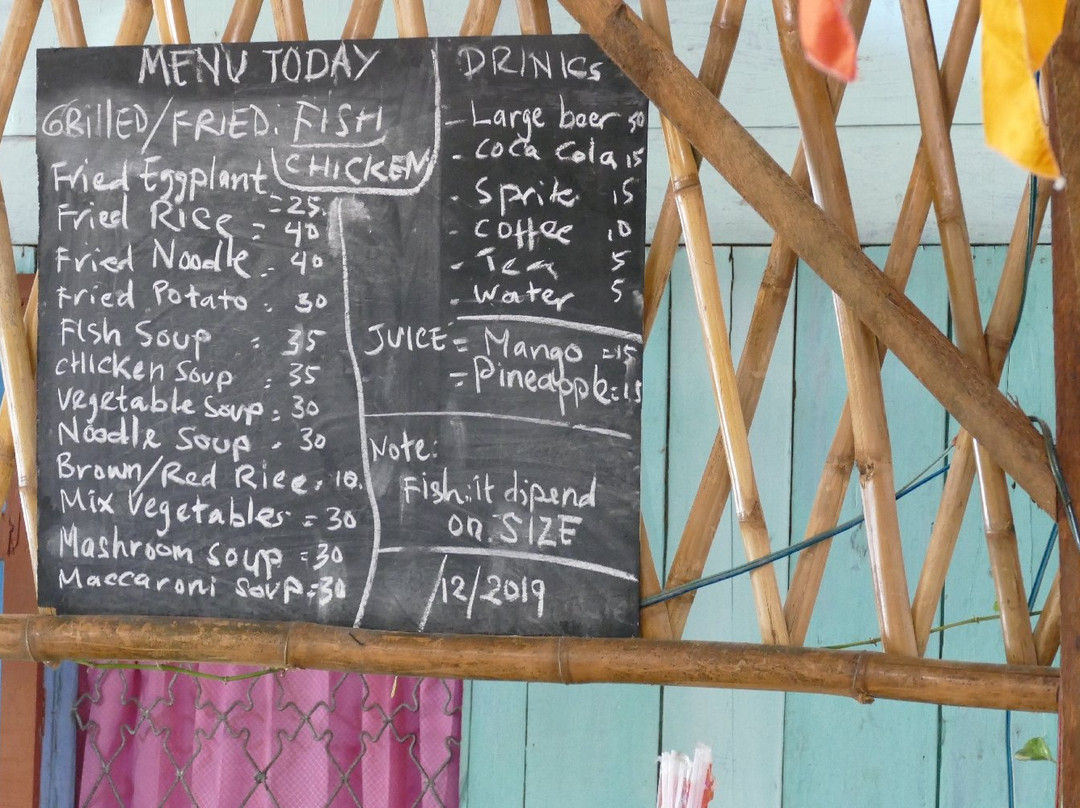 MENU TODAY
GRILLED/FRIED: FISH
CHICKEN
Fried Eggplant = 25.
Fried Rice = 40
Fried Noodle - 40
Fried Potato . 30
FIsh Soup : 35
cHIcken Soup : 35
vegetable Soup . 30
Noodle Soup . 30
Brown/Red Rice . 10.
Mix Vegetables = 30
Mashroom soup = 30
Maccaroni Soup = 30
DRINKs
- Large beer 50
- coca cola 15
- Sprite 15
- coffee 10
- Tea 5
- Water 5
JUICE = Mango = 15
= Pineapple = 15
Note:
Fish: it dipend
on SIZE
/12/2019